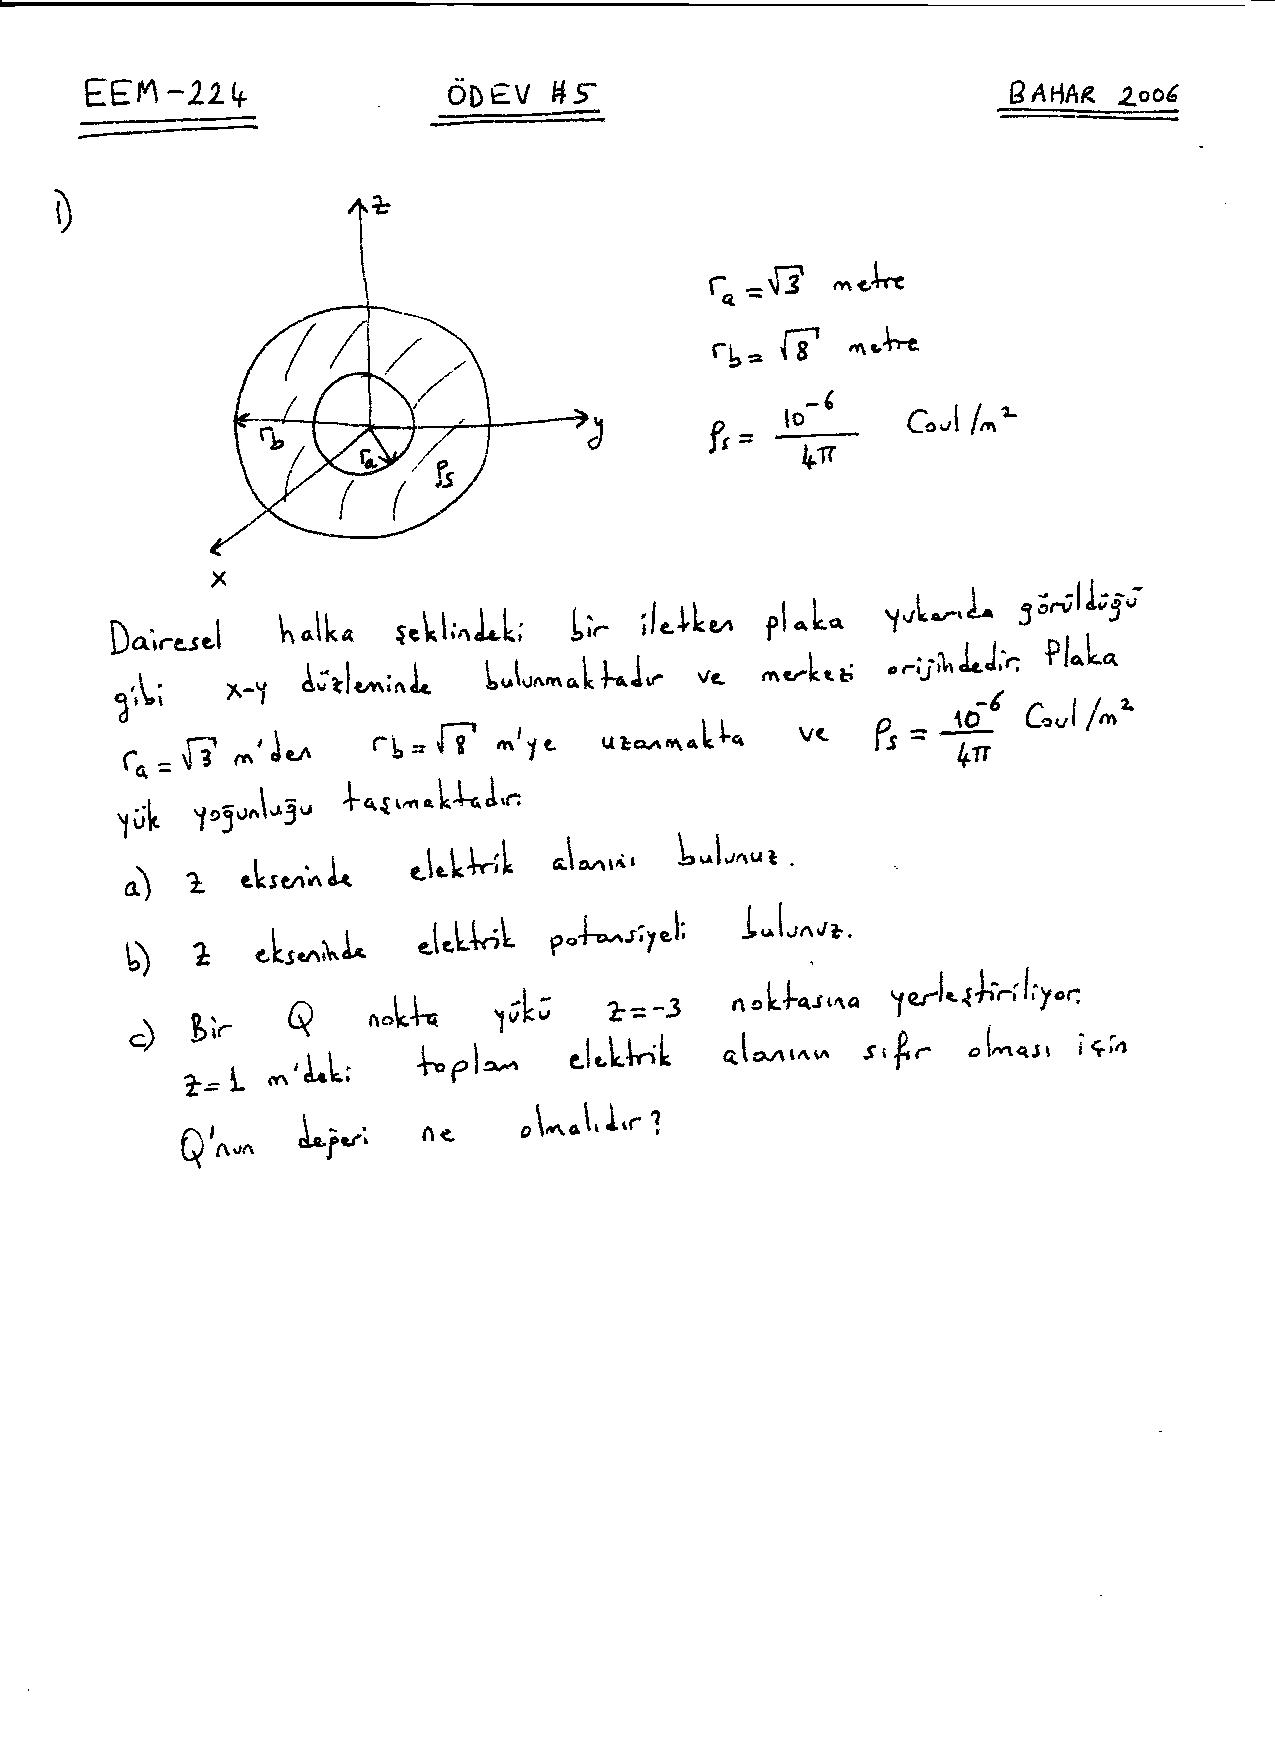 EEM-224 ÖDEV #5 BAHAR 2006
1)
z
r_a = √3 metre
r_b = √8 metre
ρ_s = 10^-6 / 4π Coul/m²
y
r_b
r_a
ρ_s
x
Dairesel halka şeklindeki bir iletken plaka yukarıda görüldüğü
gibi x-y düzleminde bulunmaktadır ve merkezi orijindedir. Plaka
r_a = √3 m'den r_b = √8 m'ye uzanmakta ve ρ_s = 10^-6 / 4π Coul/m²
yük yoğunluğu taşımaktadır.
a) z ekseninde elektrik alanını bulunuz.
b) z ekseninde elektrik potansiyeli bulunuz.
c) Bir Q nokta yükü z=-3 noktasına yerleştiriliyor.
z=1 m'deki toplam elektrik alanının sıfır olması için
Q'nun değeri ne olmalıdır?